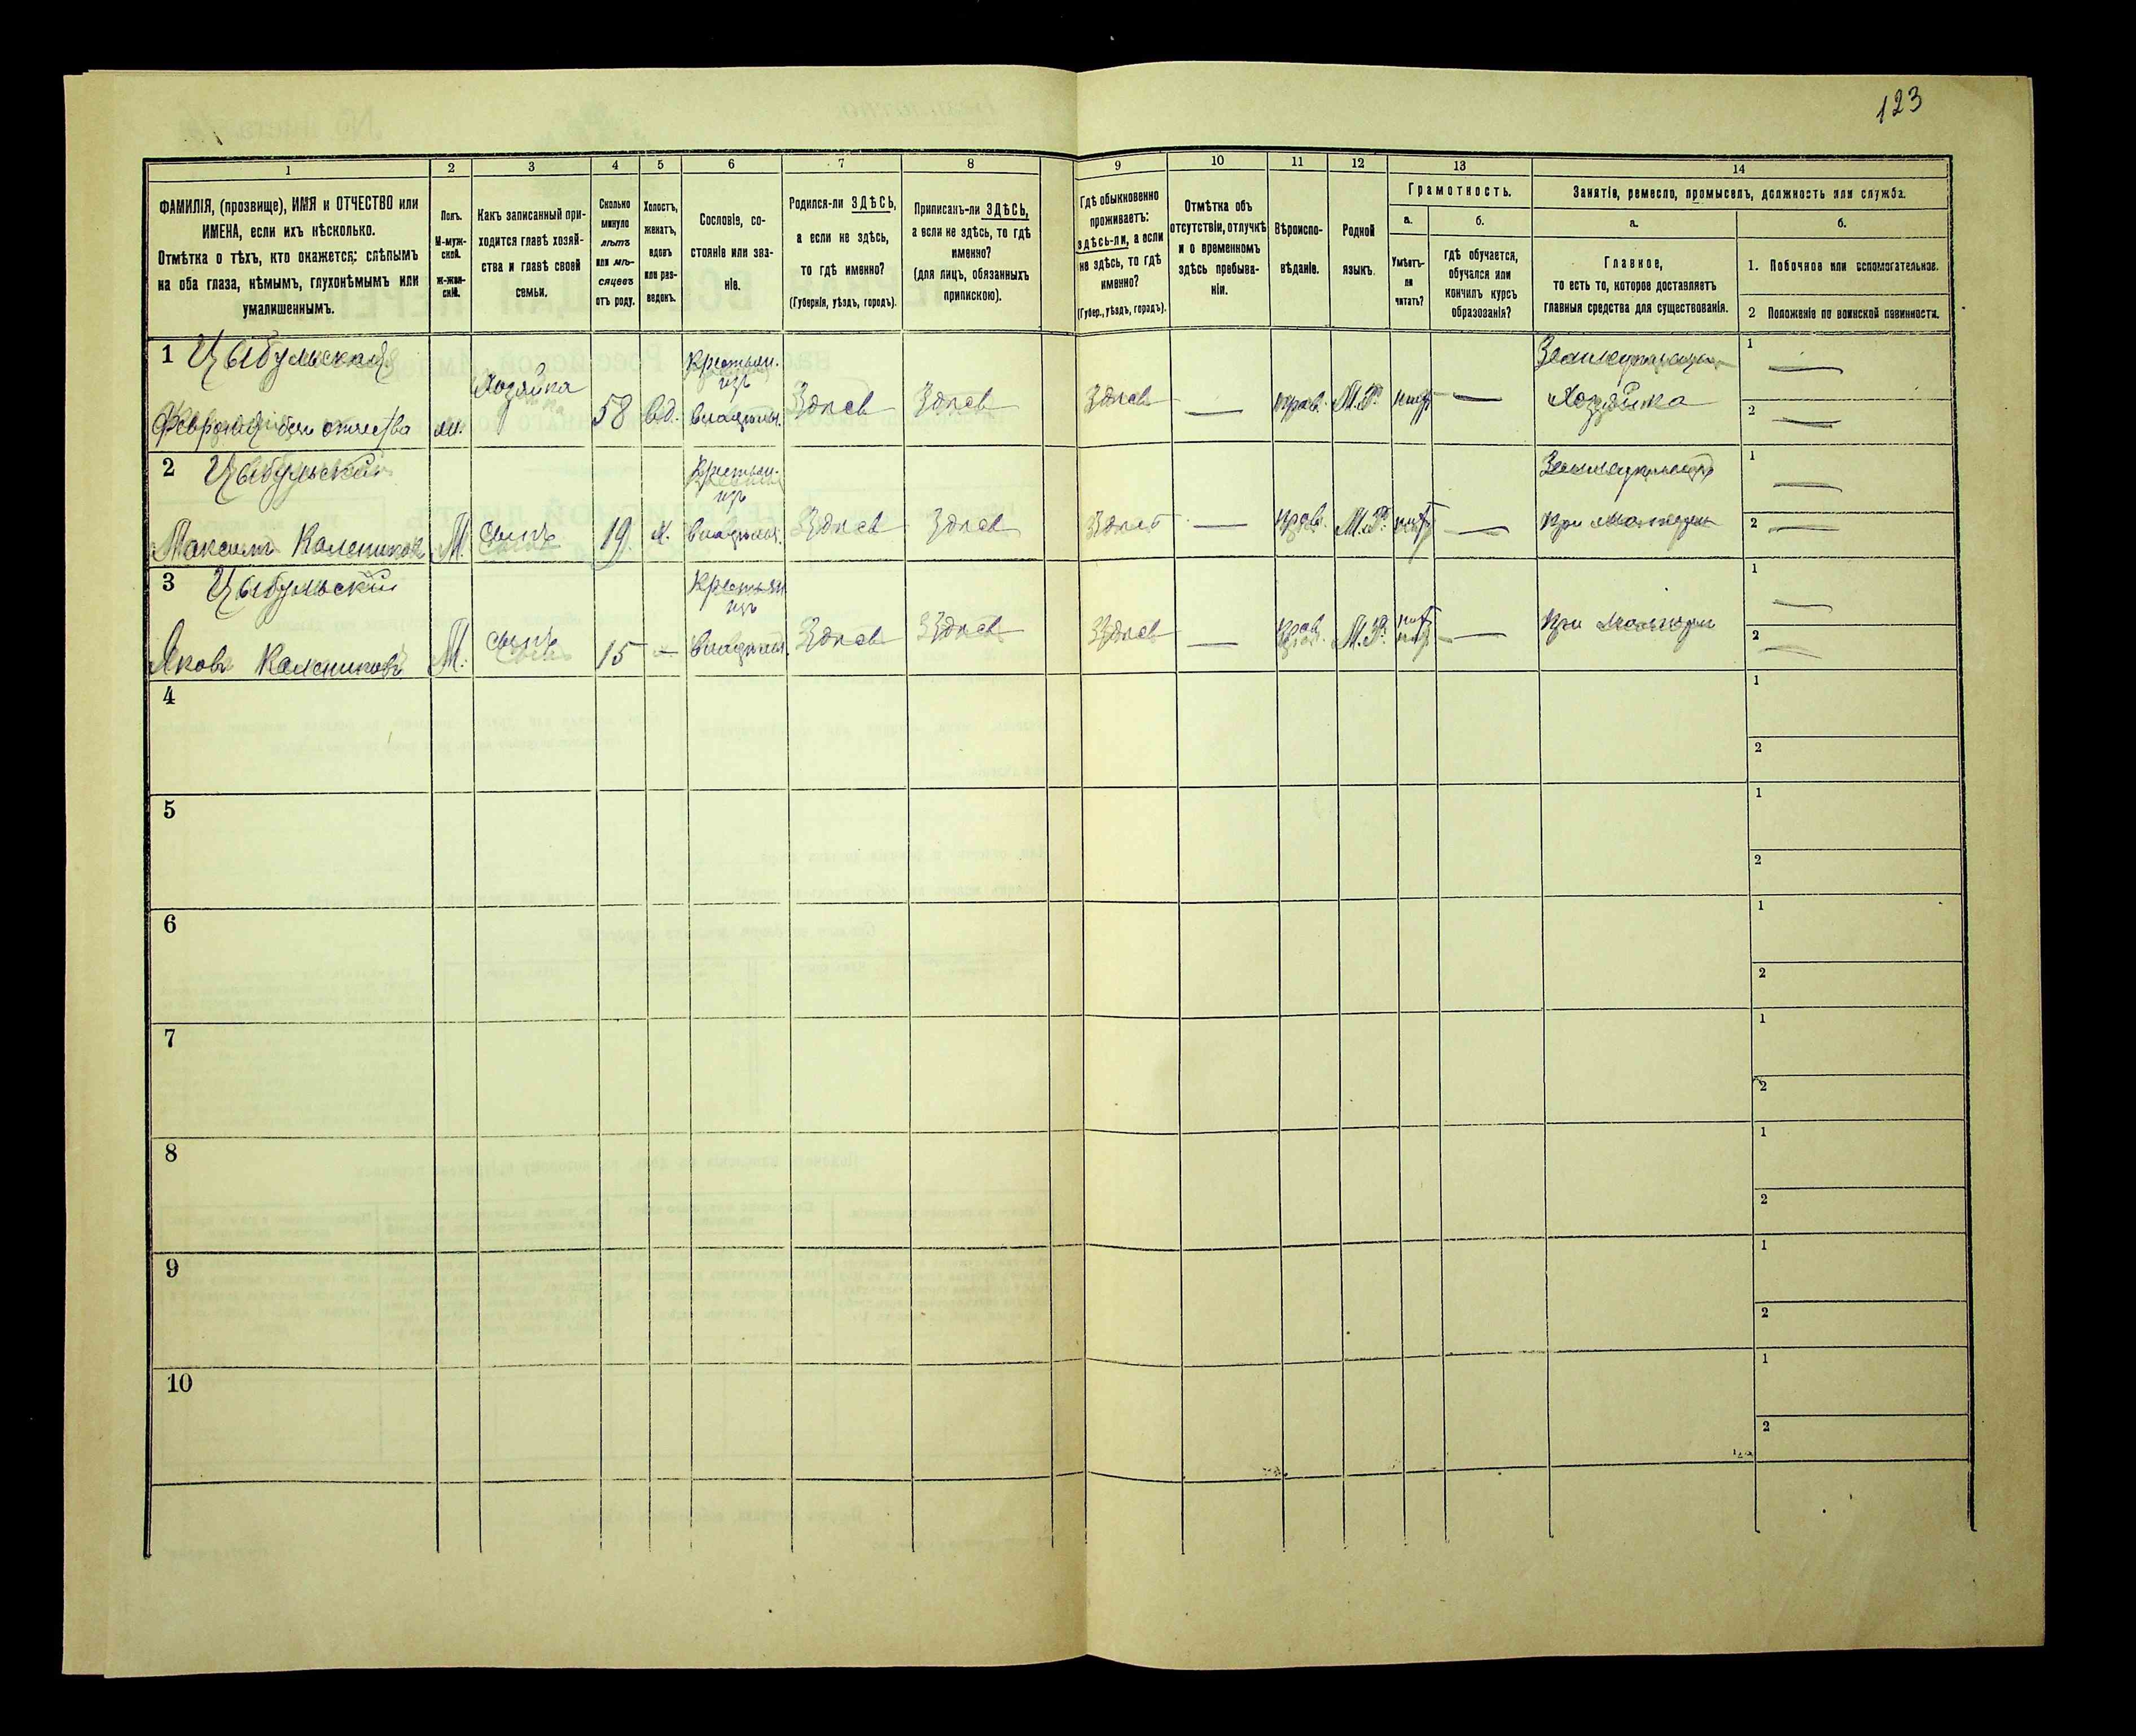 123
1 2 3 4 5 6 7 8 9 10 11 12 13 14
ФАМИЛІЯ, (прозвище), ИМЯ и ОТЧЕСТВО или
ИМЕНА, если ихъ нѣсколько.
Отмѣтка о тѣхъ, кто окажется: слѣпымъ
на оба глаза, нѣмымъ, глухонѣмымъ или
умалишеннымъ.
Полъ.
М-муж-
ской.
ж-жен-
скій.
Какъ записанный при-
ходится главѣ хозяй-
ства и главѣ своей
семьи.
Сколько
минуло
лѣтъ
или мѣ-
сяцевъ
отъ роду.
Холостъ,
женатъ,
вдовъ
или раз-
веденъ.
Сословіе, со-
стояніе или зва-
ніе.
Родился-ли ЗДѢСЬ,
а если не здѣсь,
то гдѣ именно?
(Губернія, уѣздъ, городъ).
Приписанъ-ли ЗДѢСЬ,
а если не здѣсь, то гдѣ
именно?
(для лицъ, обязанныхъ
припискою).
Гдѣ обыкновенно
проживаетъ:
здѣсь-ли, а если
не здѣсь, то гдѣ
именно?
(Губер., уѣздъ, городъ).
Отмѣтка объ
отсутствіи, отлучкѣ
и о временномъ
здѣсь пребыва-
ніи.
Вѣроиспо-
вѣданіе.
Родной
языкъ.
Грамотность.
а.
Умѣетъ-
ли
читать?
б.
Гдѣ обучается,
обучался или
кончилъ курсъ
образованія?
Занятіе, ремесло, промыселъ, должность или служба.
а.
Главное,
то есть то, которое доставляетъ
главныя средства для существованія.
б.
1. Побочное или вспомогательное.
2 Положеніе по воинской повинности.
1 Цыбульская Крестьян. 1
изъ
Хозяйка
Февронія без отчества 58 вд. владѣльч. Здѣсь Здѣсь Здѣсь — прав. М.Р. нѣтъ — Хозяйка 2
2 Цыбульский Крестьян. 1
изъ
Максимъ Калениковъ М. Сынъ 19 х. владѣльч. Здѣсь Здѣсь Здѣсь — прав. М.Р. нѣтъ — при матери 2
3 Цыбульский Крестьян 1
изъ
Яковъ Калениковъ М. Сынъ 15 — владѣльч. Здѣсь Здѣсь Здѣсь — прав. М.Р. нѣтъ — при матери 2
4 1
2
5 1
2
6 1
2
7 1
2
8 1
2
9 1
2
10 1
2